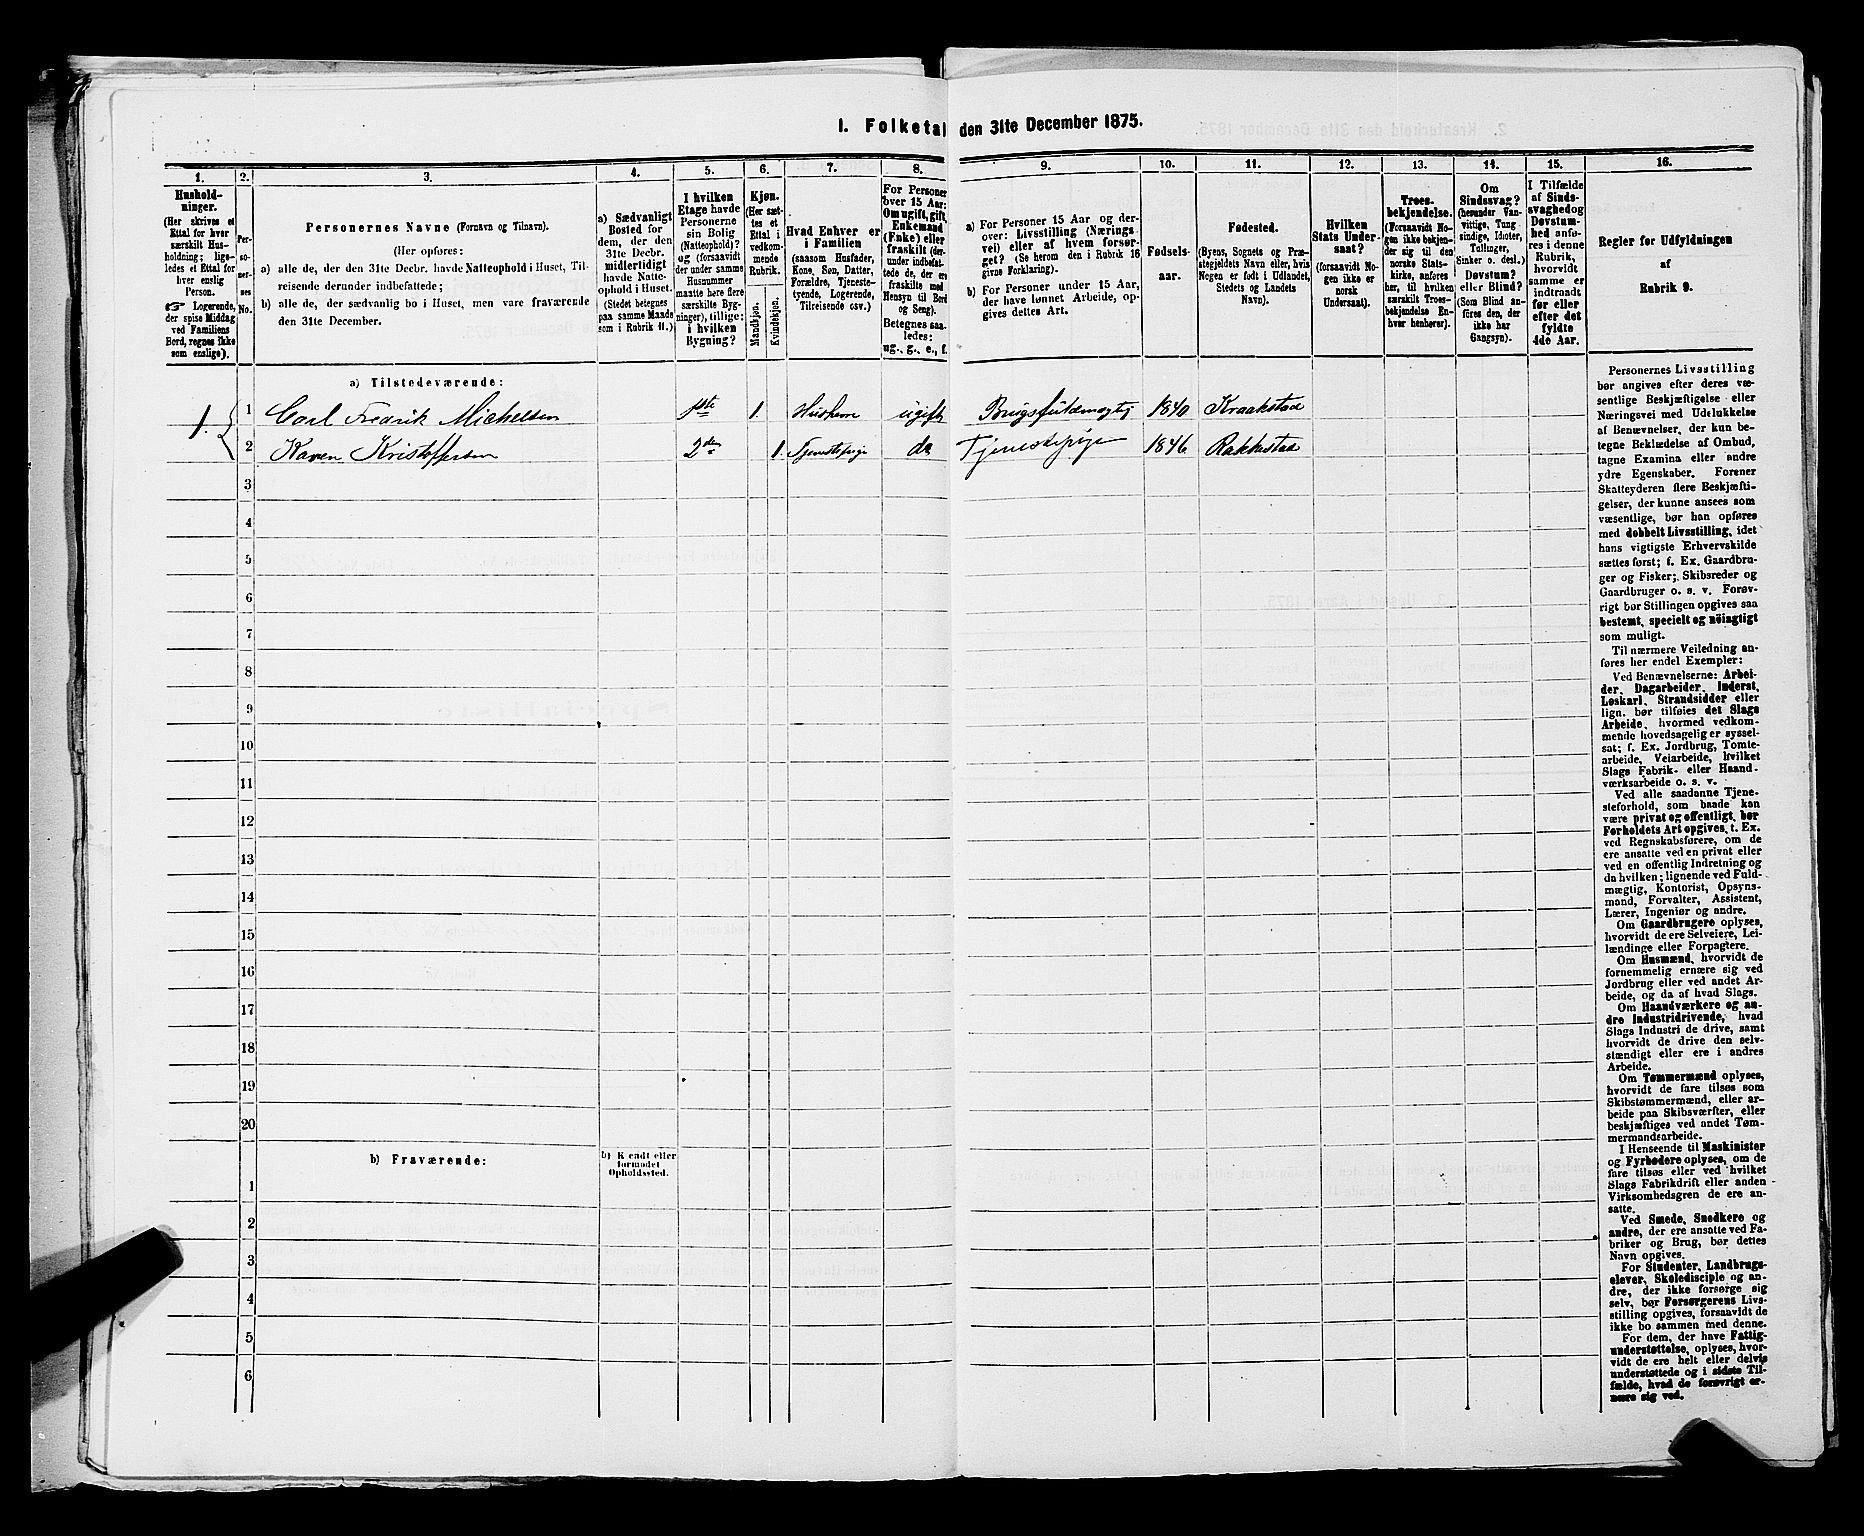 1. Folketal den 31te December 1875.
1. 2. 3. 4. 5. 6. 7. 8. 9. 10. 11. 12. 13. 14. 15. 16.
Hushold-
ninger.
(Her skrives et
Ettal for hver
særskilt Hus-
holdning; lige-
ledes et Ettal for
hver enslig
Person.
☞ Logerende,
der spise Middag
ved Familiens
Bord, regnes ikke
som enslige).
Per-
so-
ner-
nes
No.
Personernes Navne (Fornavn og Tilnavn).
(Her opføres:
a) alle de, der den 31te Decbr. havde Natteophold i Huset, Til-
reisende derunder indbefattede;
b) alle de, der sædvanlig bo i Huset, men vare fraværende
den 31te December.
a) Sædvanligt
Bosted for
dem, der den
31te Decbr.
midlertidigt
havde Natte-
ophold i Huset.
(Stedet betegnes
paa samme Maade
som i Rubrik 11.)
I hvilken
Etage havde
Personerne
sin Bolig
(Natteophold)?
og (forsaavidt
der under samme
Husnummer
maatte høre flere
særskilte Byg-
ninger), tillige:
i hvilken
Bygning?
Kjøn.
(Her sæt-
tes et
Ettal i
vedkom-
mende
Rubrik.
Mandkjøn.
Kvindekjøn.
Hvad Enhver er
i Familien
(saasom Husfader,
Kone, Søn, Datter,
Forældre, Tjeneste-
tyende, Logerende,
Tilreisende csv.)
For Personer
over 15 Aar:
Om ugift, gift,
Enkemand
(Enke) eller
fraskilt (der-
under indbefat-
tede de, der ere
fraskilte med
Hensyn til Bord
og Seng).
Betegnes saa-
ledes:
ug., g., e., f.
a) For Personer 15 Aar og der-
over: Livsstilling (Nærings-
vei) eller af hvem forsør-
get? (Se herom den i Rubrik 16
givne Forklaring).
b) For Personer under 15 Aar,
der have lønnet Arbeide, op-
gives dettes Art.
Fødsels-
aar.
Fødested.
(Byens, Sognets og Præ-
stegjeldets Navn eller, hvis
Nogen er født i Udlandet,
Stedets og Landets
Navn).
Hvilken
Stats Under-
saat?
(forsaavidt No-
gen ikke er
norsk
Undersaat).
Troes-
bekjendelse.
(Forsaavidt No-
gen ikke bekjen-
der sig til den
norske Stats-
kirke, anføres
her, til hvilken
særskilt Troes-
bekjendelse En-
hver henhører).
Om
Sindssvag?
(herunder Van-
vittige, Tung-
sindige, Idioter,
Tullinger,
Sinker o. desl.)
Døvstum?
eller Blind?
(Som Blind an-
føres den, der
ikke har
Gangsyn).
I Tilfælde
af Sinds-
svaghed og
Døvstum-
hed anfø-
res i denne
Rubrik,
hvorvidt
samme er
indtraadt
før eller
efter det
fyldte
4de Aar.
Regler for Udfyldningen
af
Rubrik 9.
a) Tilstedeværende:
1. 1 Carl Fredrik Michelsen 1ste 1. Husherre ugift Brugsfuldmægtig 1840 Kraakstad
2 Karen Kristoffersen 2den 1. Tjenestepige do Tjenestepige 1846 Rakkestad
3
4
5
6
7
8
9
10
11
12
13
14
15
16
17
18
19
20
b) Fraværende: b) Kendt eller
formodet
Opholdssted.
1
2
3
4
5
6
Personernes Livsstilling
bør angives efter deres væ-
sentlige Beskjæftigelse eller
Næringsvei med Udelukkelse
af Benævnelser, der kun be-
tegne Beklædelse af Ombud,
tagne Examina eller andre
ydre Egenskaber. Forener
Skatteyderen flere Beskjæfti-
gelser, der kunne ansees som
væsentlige, bør han opføres
med dobbelt Livsstilling, idet
hans vigtigste Erhvervskilde
sættes først; f. Ex. Gaardbru-
ger og Fisker; Skibsreder og
Gaardbruger o. s. v. Forøv-
rigt bør Stillingen opgives saa
bestemt, specielt og nöiagtigt
som muligt.
Til nærmere Veiledning an-
føres her endel Exempler:
Ved Benævnelserne: Arbei-
der, Dagarbeider, Inderst,
Løskarl, Strandsidder eller
lign. bør tilføies det Slags
Arbeide, hvormed vedkom-
mende hovedsagelig er syssel-
sat; f. Ex. Jordbrug, Tomte-
arbeide, Veiarbeide, hvilket
Slags Fabrik- eller Haand-
værksarbeide o. s. v.
Ved alle saadanne Tjene-
steforhold, som baade kan
være privat og offentligt, bør
Forholdets Art opgives, t. Ex.
ved Regnskabsførere, om de
ere ansatte ved en privat eller
ved en offentlig Indretning og
da hvilken; lignende ved Fuld-
mægtig, Kontorist, Opsyns-
mand, Forvalter, Assistent,
Lærer, Ingeniør og andre.
Om Gaardbrugere oplyses,
hvorvidt de ere Selveiere, Lei-
lændinge eller Forpagtere.
Om Husmænd, hvorvidt de
fornemmelig ernære sig ved
Jordbrug eller ved andet Ar-
beide, og da af hvad Slags.
Om Haandværkere og an-
dre Industridrivende, hvad
Slags Industri de drive, samt
hvorvidt de drive den selv-
stændigt eller ere i andres
Arbeide.
Om Tømmermænd oplyses,
hvorvidt de fare tilsøs som
Skibstømmermænd, eller ar-
beide paa Skibsværfter, eller
beskjæftiges ved andet Tøm-
mermandsarbeide.
I Henseende til Maskinister
og Fyrbødere oplyses, om de
fare tilsøs eller ved hvilket
Slags Fabrikdrift eller anden
Virksomhedsgren de ere an-
satte.
Ved Smede, Snedkere og
andre, der ere ansatte ved Fa-
briker og Brug, bør dettes
Navn opgives.
For Studenter, Landbrugs-
elever, Skoledisciple og an-
dre, der ikke forsørge sig
selv, bør Forsørgerens Livs-
stilling opgives, forsaavidt de
ikke bo sammen med denne.
For dem, der have Fattig-
understøttelse, oplyses, hvor-
vidt de ere helt eller delvis
understøttede og i sidste Til-
fælde, hvad de forøvrigt er-
nære sig ved.